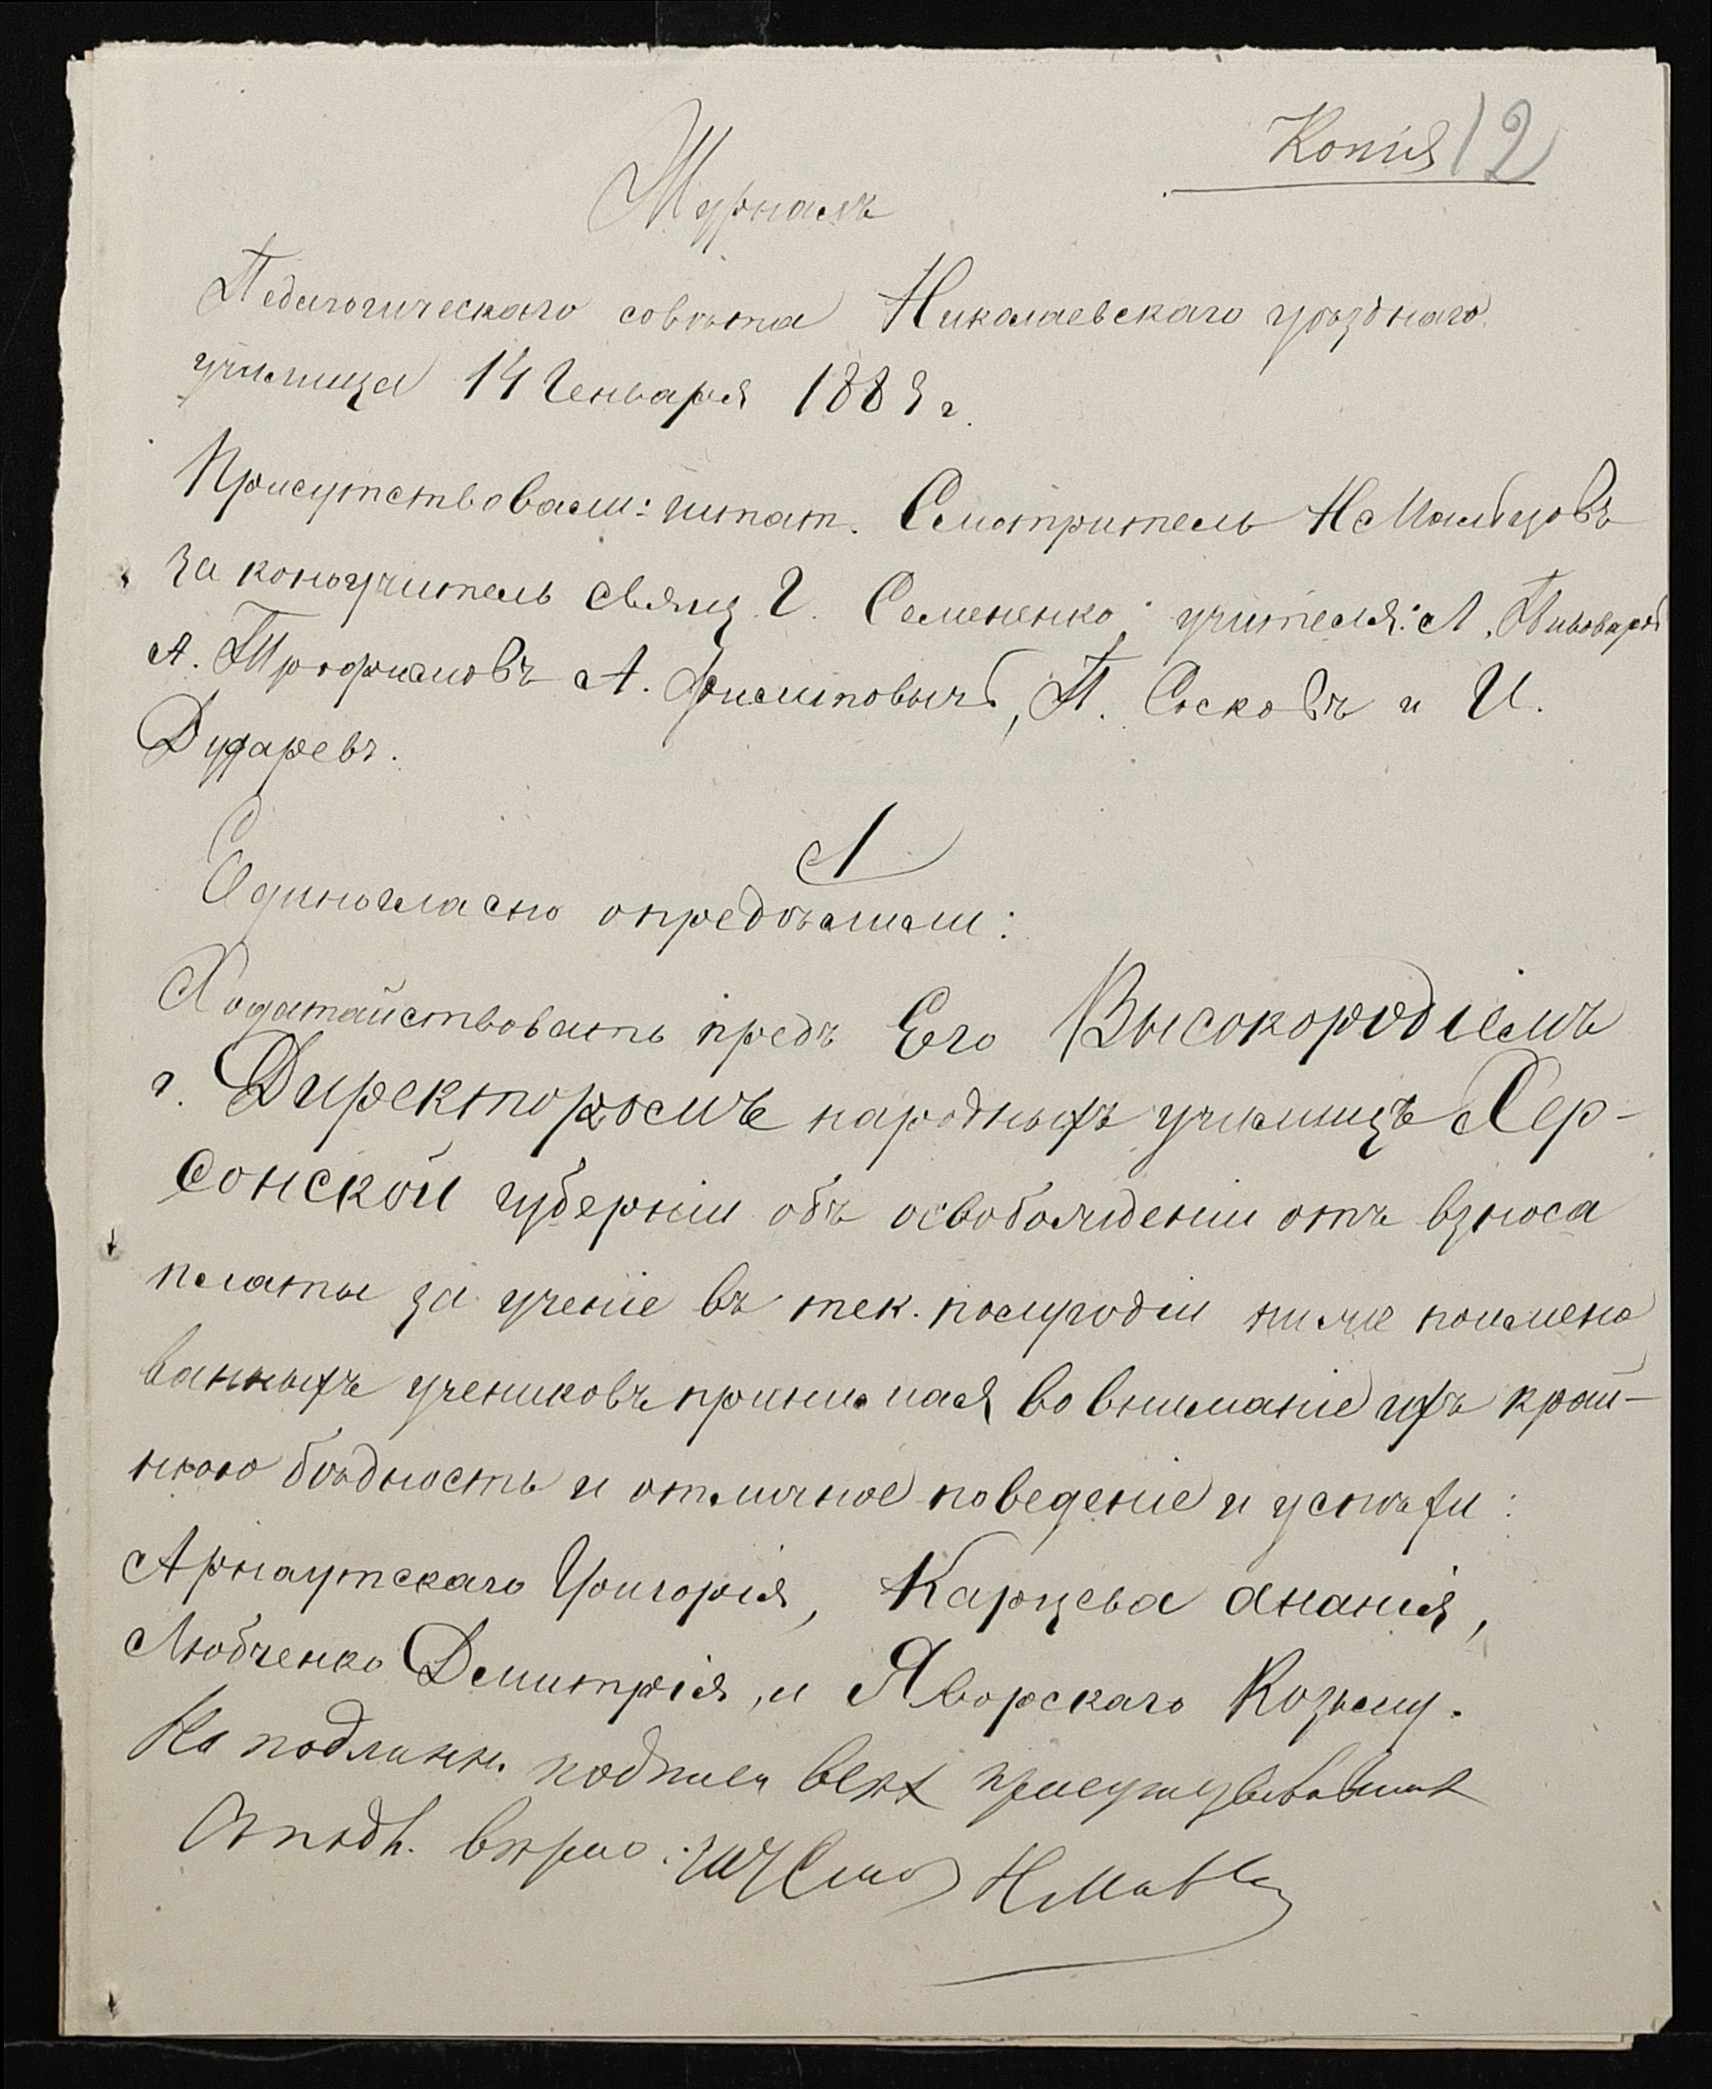 Копія 12
Журналъ
Педагогическаго совѣта Николаевскаго уѣзднаго
училища 14 Генваря 1883 г.
Присутствовали: штат. Смотритель Н
законоучитель священ. Г. Семененко; учителя: А. Пивоваровъ
А. Трофимовъ А. Филиповичъ, П. Сосковъ и И.
Дударевъ.
1
Единогласно опредѣлили:
Ходатайствовать предъ Его Высокородіемъ
г. Директоромъ народныхъ училищъ Хер-
сонской губерніи объ освобожденіи отъ взноса
платы за ученіе въ тек. полугодіи ниже поимено
ванныхъ учениковъ принимая во вниманіе ихъ край-
нюю бѣдность и отличное поведеніе и успѣхи:
Арнаутскаго Григорія, Карцева Ананія,
Любченко Димитрія, и Яворскаго Козьму.
На подлинн. подписи всѣх присутствовавших
Съ подл. вѣрно: